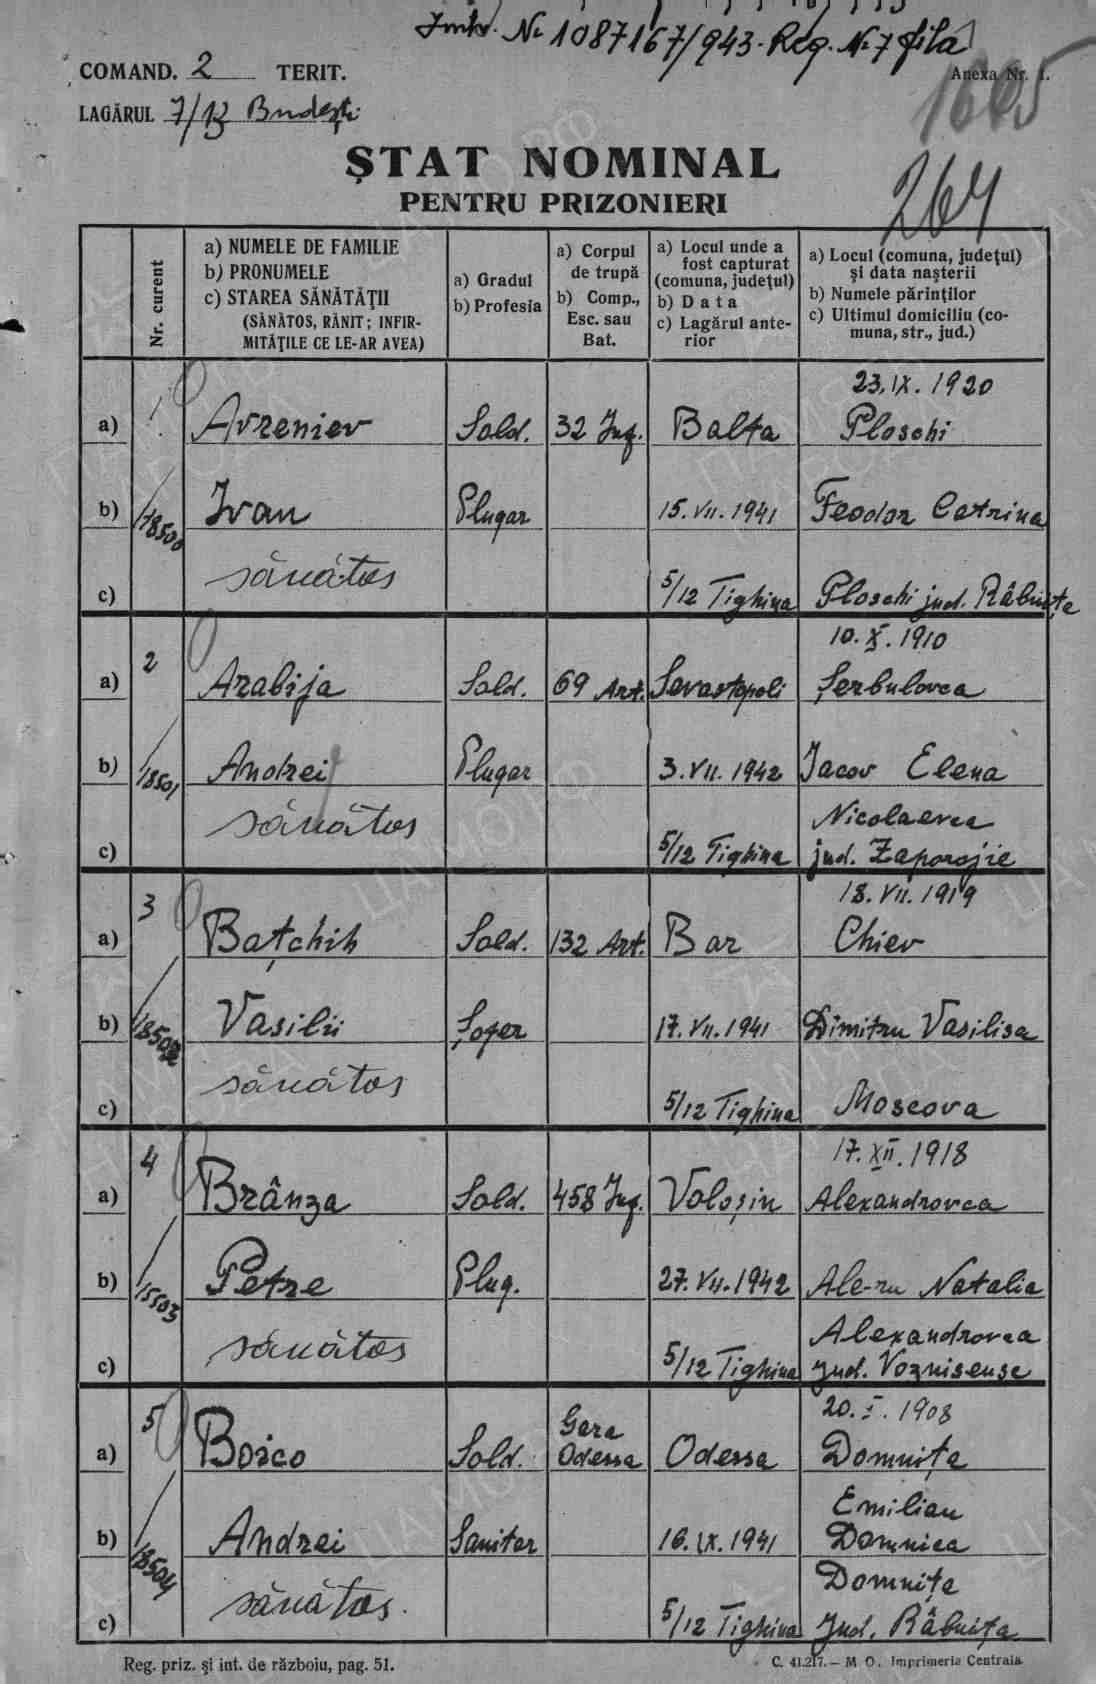 Intr. Nr 1087167/943. Reg. Nr 7 fila
COMAND. 2 TERIT.
Anexa Nr. 1.
1665
LAGĂRUL 7/13 Budești
ȘTAT NOMINAL
264
PENTRU PRIZONIERI
Nr. curent
a) NUMELE DE FAMILIE
b) PRONUMELE
c) STAREA SĂNĂTĂȚII
(SĂNĂTOS, RĂNIT; INFIR-
MITĂȚILE CE LE-AR AVEA)
a) Gradul
b) Profesia
a) Corpul
de trupă
b) Comp.,
Esc. sau
Bat.
a) Locul unde a
fost capturat
(comuna, județul)
b) Data
c) Lagărul ante-
rior
a) Locul (comuna, județul)
și data nașterii
b) Numele părinților
c) Ultimul domiciliu (co-
muna, str., jud.)
23.IX.1920
a) 1 Avreniev Sold. 32 Inf. Balta Ploschi
b) 18500 Ivan Plugar 15.VII.1941 Feodor Catrina
c) sănătos 5/12 Tighina Ploschi jud. Râbnița
10.X.1910
a) 2 Arabija Sold. 69 Art. Sevastopoli Șerbulovca
b) 18501 Andrei Plugar 3.VII.1942 Iacov Elena
Nicolaevca
c) sănătos 5/12 Tighina jud. Zaporojie
18.VII.1919
a) 3 Bațchih Sold. 132 Art. Bar Chiev
b) 18502 Vasilii Șofer 17.VII.1941 Dimitru Vasilisa
c) sănătos 5/12 Tighina Moscova
17.XII.1918
a) 4 Brânza Sold. 458 Inf. Voloșin Alexandrovca
b) 15503 Petre Plug. 27.VII.1942 Ale-ru Natalia
Alexandrovca
c) sănătos 5/12 Tighina jud. Voznisensc
20.I.1908
a) 5 Boico Sold. Gara Odessa Odessa Domnița
Emilian
b) 18504 Andrei Sanitar 16.IX.1941 Domnica
Domnița
c) sănătos. 5/12 Tighina Jud. Râbnița
Reg. priz. și int. de război, pag. 51.
C. 41.217.— M. O. Imprimeria Centrala